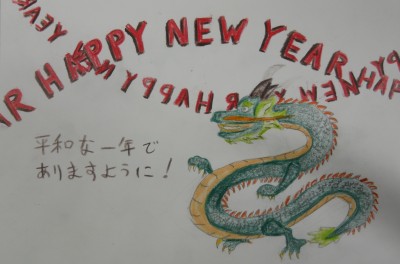 HAPPY NEW YEAR
YEAR HAPPY NEW YEAR HAPPY NEW YEAR HAPPY
平和な一年で
ありますように！